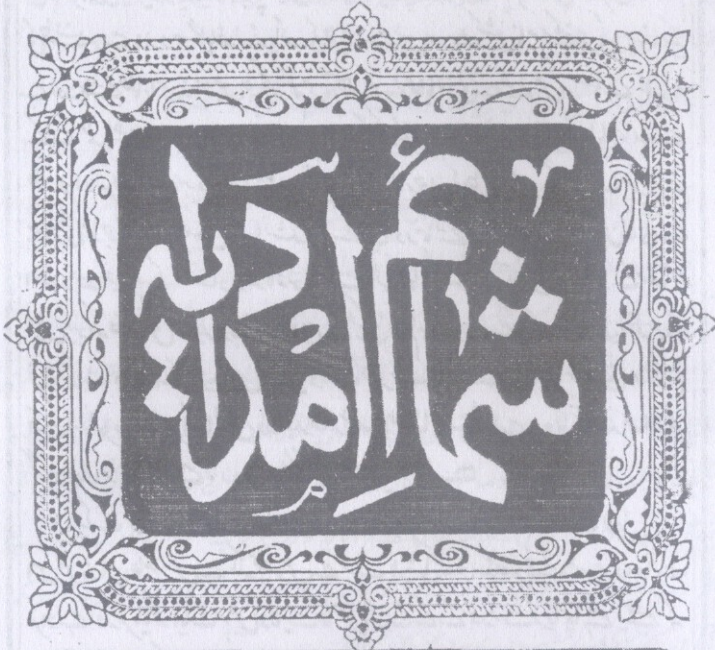 شمائم امدادیہ